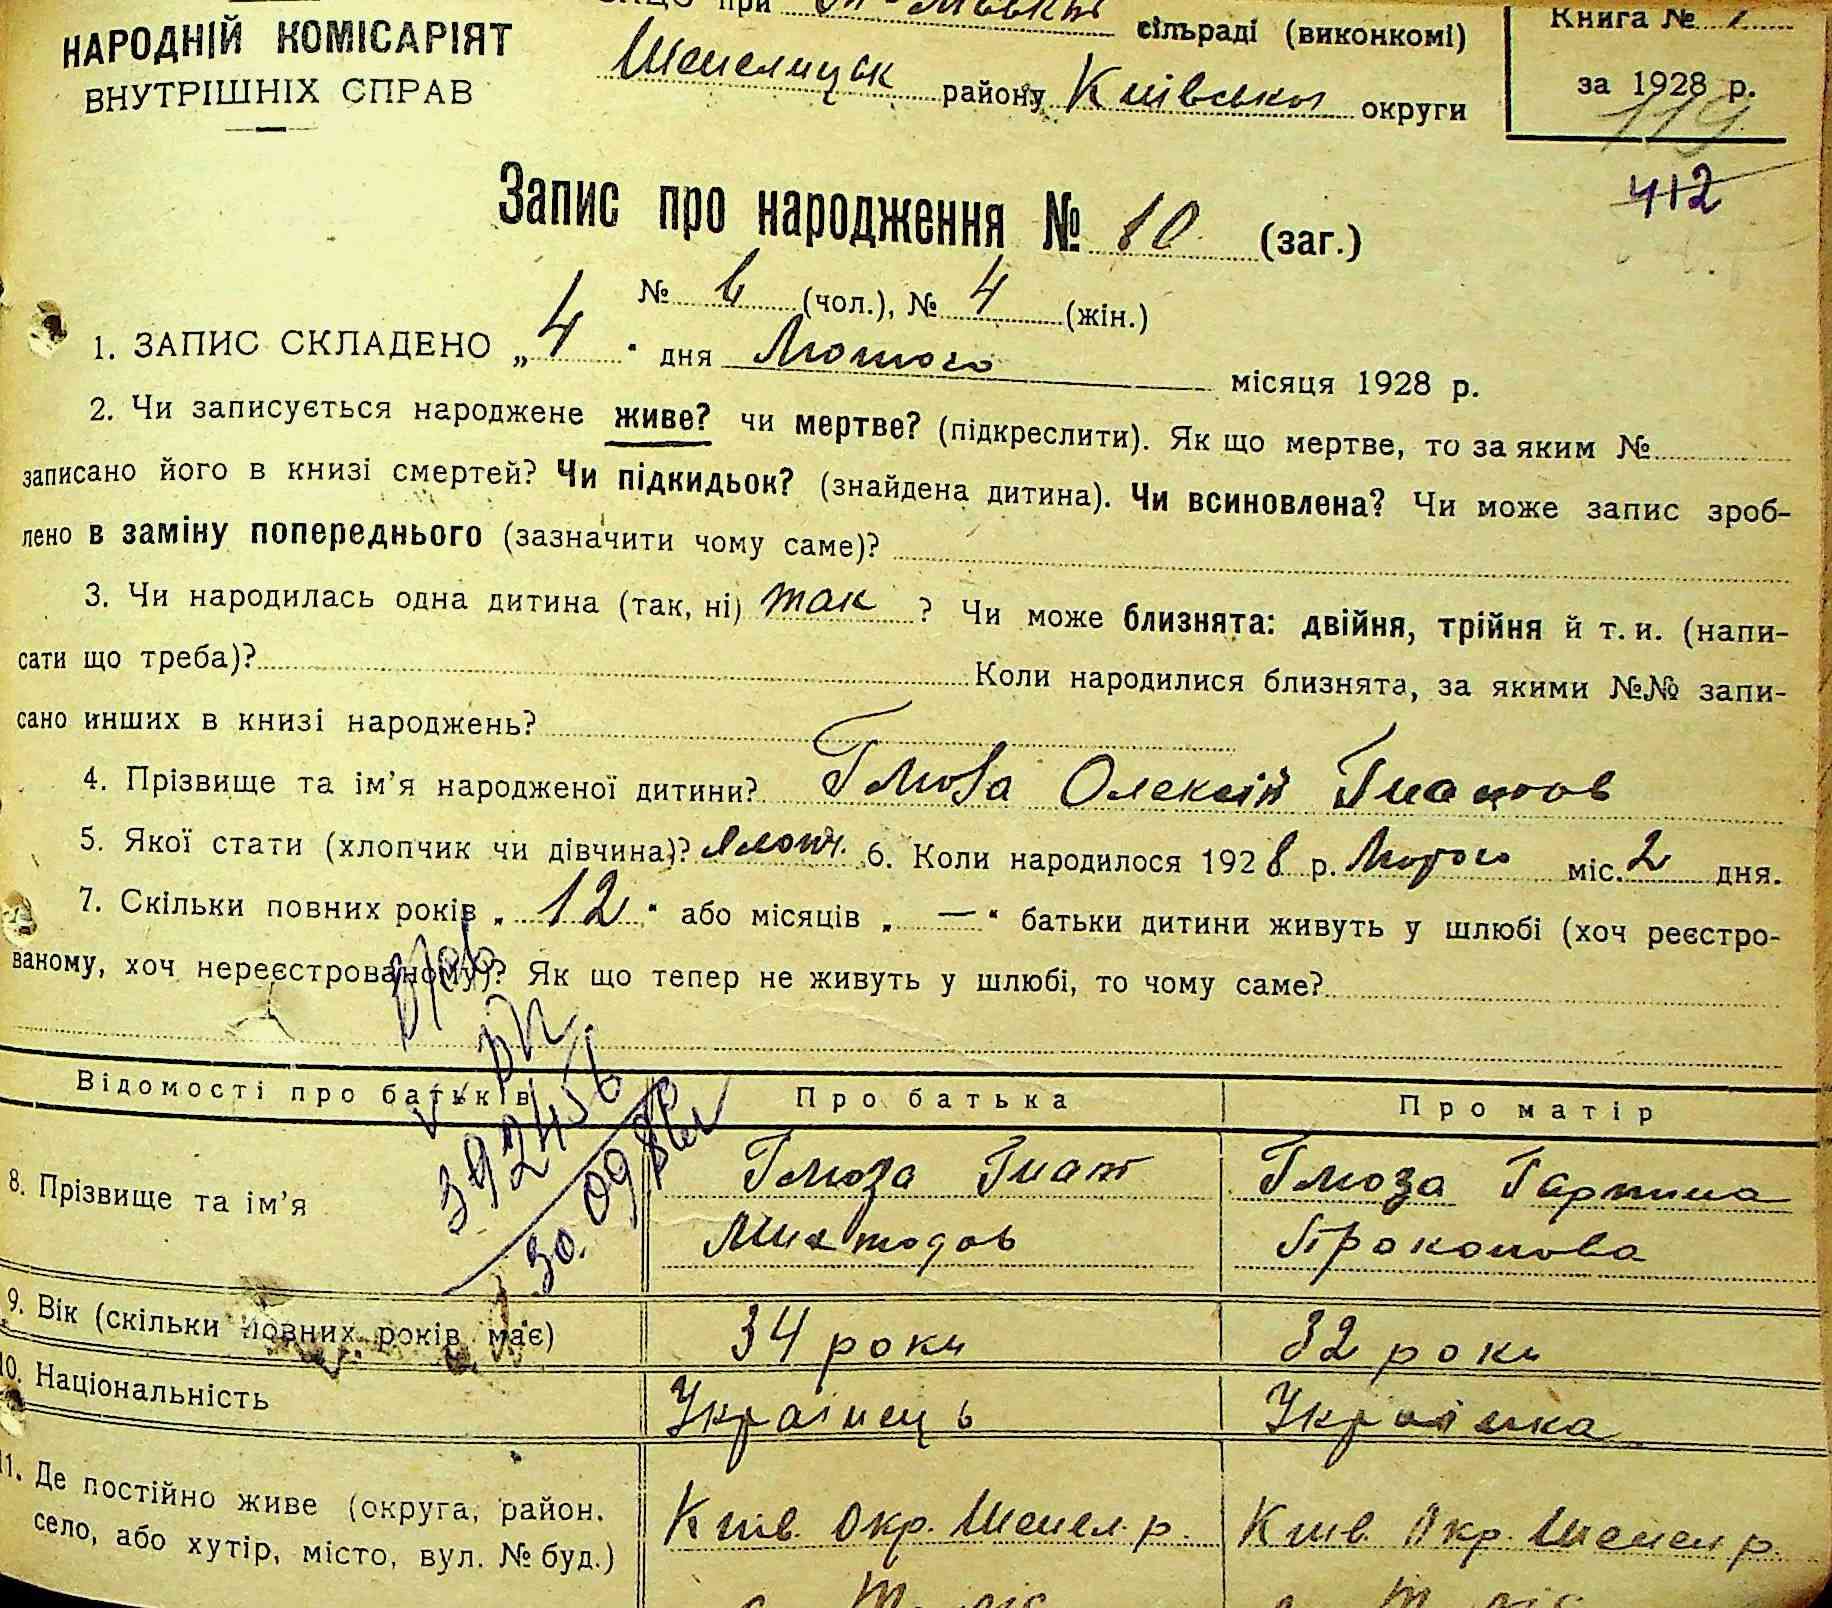 НАРОДНІЙ КОМІСАРІЯТ
ВНУТРІШНІХ СПРАВ
при сільраді (виконкомі)
Шепелицьк району Київської округи
Книга №
за 1928 р.
119
412
Запис про народження № 10 (заг.)
№ 6 (чол.), № 4 (жін.)
1. ЗАПИС СКЛАДЕНО „ 4 " дня Лютого місяця 1928 р.
2. Чи записується народжене живе? чи мертве? (підкреслити). Як що мертве, то за яким №
записано його в книзі смертей? Чи підкидьок? (знайдена дитина). Чи всиновлена? Чи може запис зроб-
лено в заміну попереднього (зазначити чому саме)?
3. Чи народилась одна дитина (так, ні) так ? Чи може близнята: двійня, трійня й т. и. (напи-
сати що треба)? Коли народилися близнята, за якими №№ запи-
сано инших в книзі народжень?
4. Прізвище та ім'я народженої дитини? Глюза Олексій Гнатов
5. Якої стати (хлопчик чи дівчина)? хлопч. 6. Коли народилося 1928 р. Лютого міс. 2 дня.
7. Скільки повних років „ 12 " або місяців „ — " батьки дитини живуть у шлюбі (хоч реєстро-
ваному, хоч нереєстрованому)? Як що тепер не живуть у шлюбі, то чому саме?
392456
30.09
Відомості про батьків Про батька Про матір
8. Прізвище та ім'я Глюза Гнат Глюза Гарпина
Прокопова
9. Вік (скільки повних років має) 34 роки 32 роки
10. Національність Українець Українка
11. Де постійно живе (округа, район, Київ. Окр. Шепел. р. Київ. Окр. Шепел р.
село, або хутір, місто, вул. № буд.)